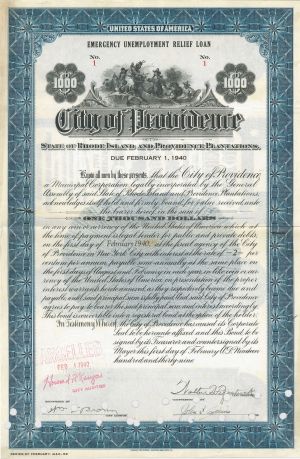 UNITED STATES OF AMERICA
EMERGENCY UNEMPLOYMENT RELIEF LOAN
No. No.
1 1
1000 1000
City of Providence
STATE OF RHODE ISLAND AND PROVIDENCE PLANTATIONS,
DUE FEBRUARY 1, 1940
Know all men by these presents, that the City of Providence,
a Municipal Corporation legally incorporated by the General
Assembly of said State of Rhode Island and Providence Plantations,
acknowledges itself held and firmly bound, for value received unto
the bearer hereof in the sum of
ONE THOUSAND DOLLARS
in any coin or currency of the United States of America which at
the time of payment is legal tender for public and private debts,
on the first day of February 1940, at the fiscal agency of the City
of Providence in New York City with interest at the rate of 2 per
centum per annum, payable semi-annually at the same place on the
first days of August and February in each year, in like coin or cur-
rency of the United States of America, on presentation of the proper
In Testimony Whereof, the City of Providence has caused its Corporate
Seal to be hereunto affixed and this Bond to be
signed by its Treasurer and countersigned by its
Mayor this first day of February A.D. Nineteen
hundred and thirty nine
FEB 1 1940
CITY AUDITOR